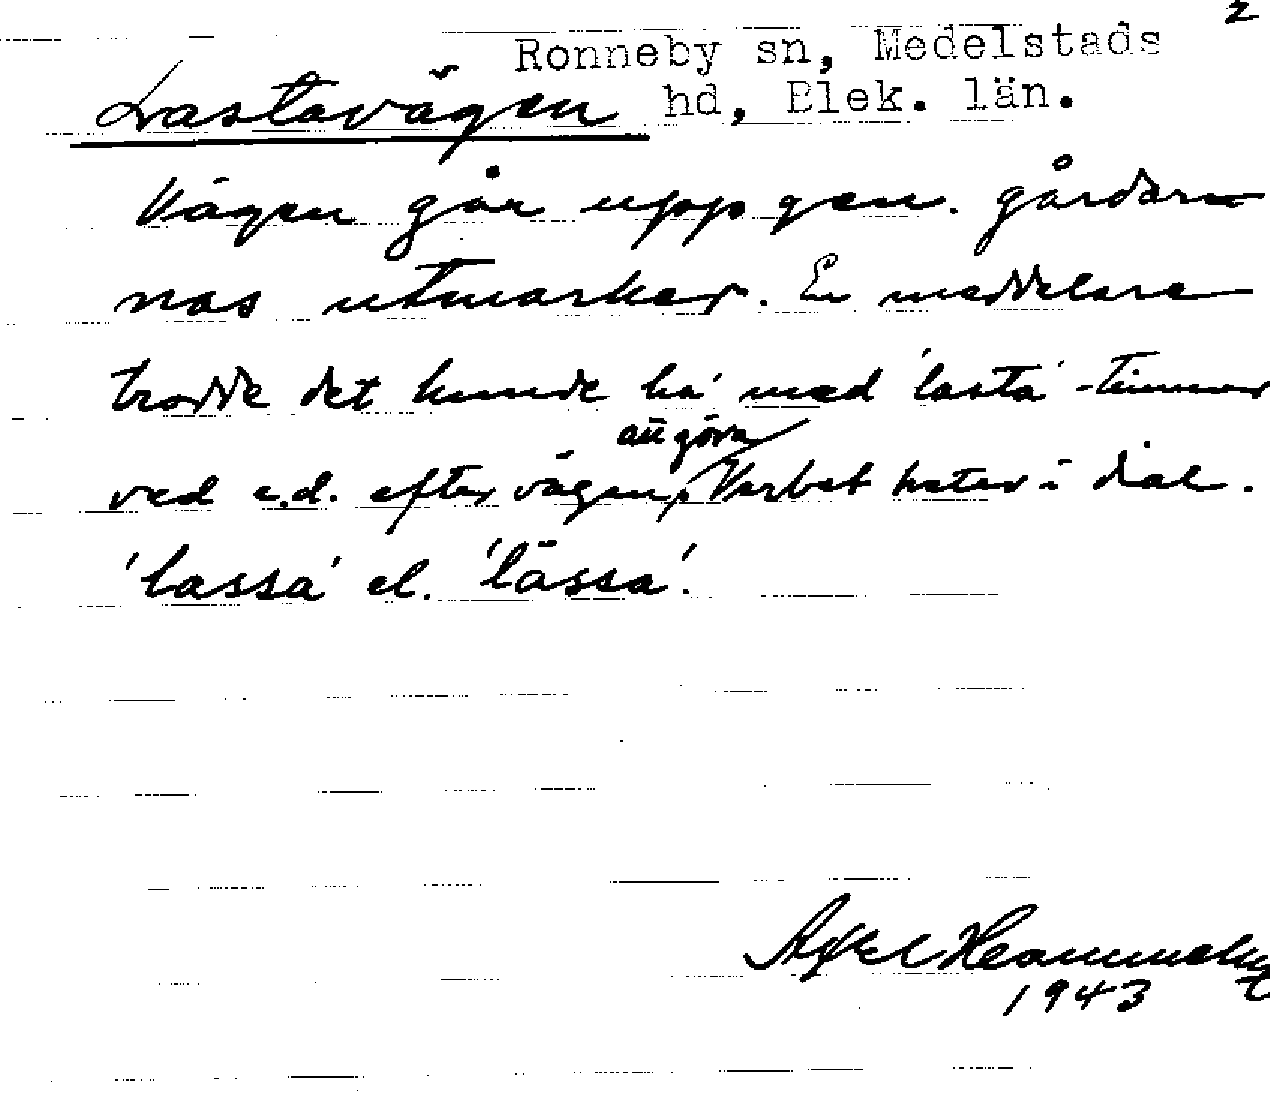 2
Ronneby sn, Medelstads
Lastavägen hd, Blek. län.
Vägen går upp gen. gårdar-
nas utmarker. En meddelare
trodde det kunde ha med 'lasta' - timmer
att göra
ved e.d. efter vägen. Verbet heter i dial.
'lassa' el. 'lässa'.
Axel
1943